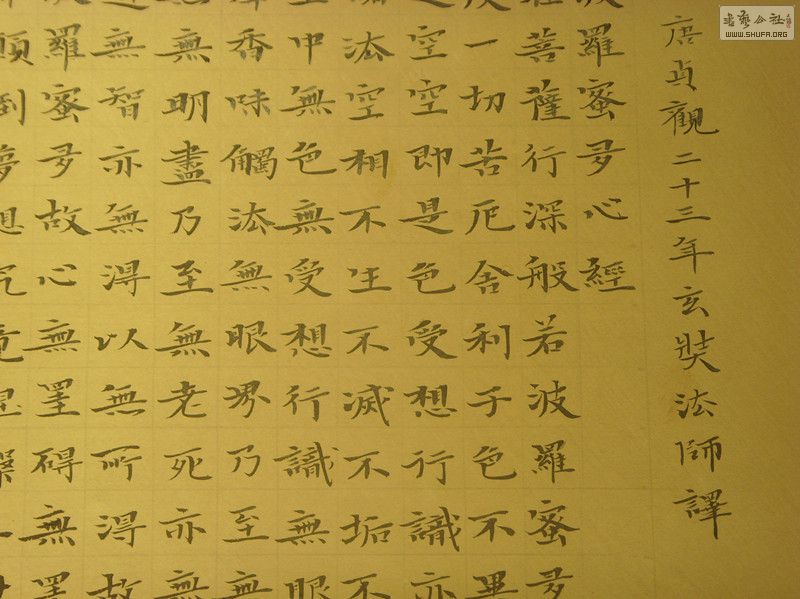 書藝公社
WWW.SHUFA.ORG
唐貞觀二十三年玄奘法師譯
羅蜜多心經
菩薩行深般若波羅蜜多
一切苦厄舍利子色不異
空空即是色受想行識亦
法空相不生不滅不垢不
中無色無受想行識無眼
香味觸法無眼界乃至無
無明盡乃至無老死亦無
無智亦無得以無所得故
羅蜜多故心無罣碍無罣